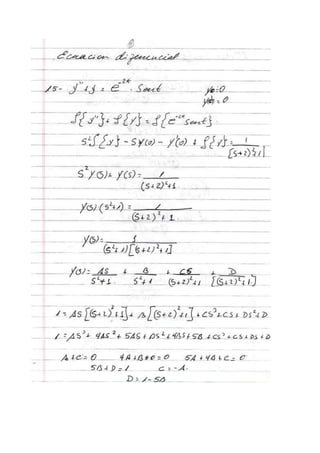 Ecuacion diferencial
15- y'' + y = e^-2t . Sent y0=0
y'0 = 0
ℒ{y''} + ℒ{y} = ℒ{e^-2t Sent}
S²ℒ{y} - Sy(0) - y'(0) + ℒ{y} = 1/[(S+2)²+1]
S²Y(S) + Y(S) = 1/((S+2)²+1)
Y(S) (S²+1) = 1/((S+2)²+1)
Y(S) = 1/((S²+1)[(S+2)²+1])
Y(S) = AS/(S²+1) + B/(S²+1) + CS/((S+2)²+1) + D/[(S+2)²+1]
1 = AS[(S+2)²+1] + B[(S+2)²+1] + CS³+CS+DS²+D
1 = AS³ + 4AS² + 5AS + BS² + 4BS + 5B + CS³ + CS + DS + D
A+C=0 4A+B+0=0 5A+4B+C=0
5B+D=1 C=-A
D=1-5B